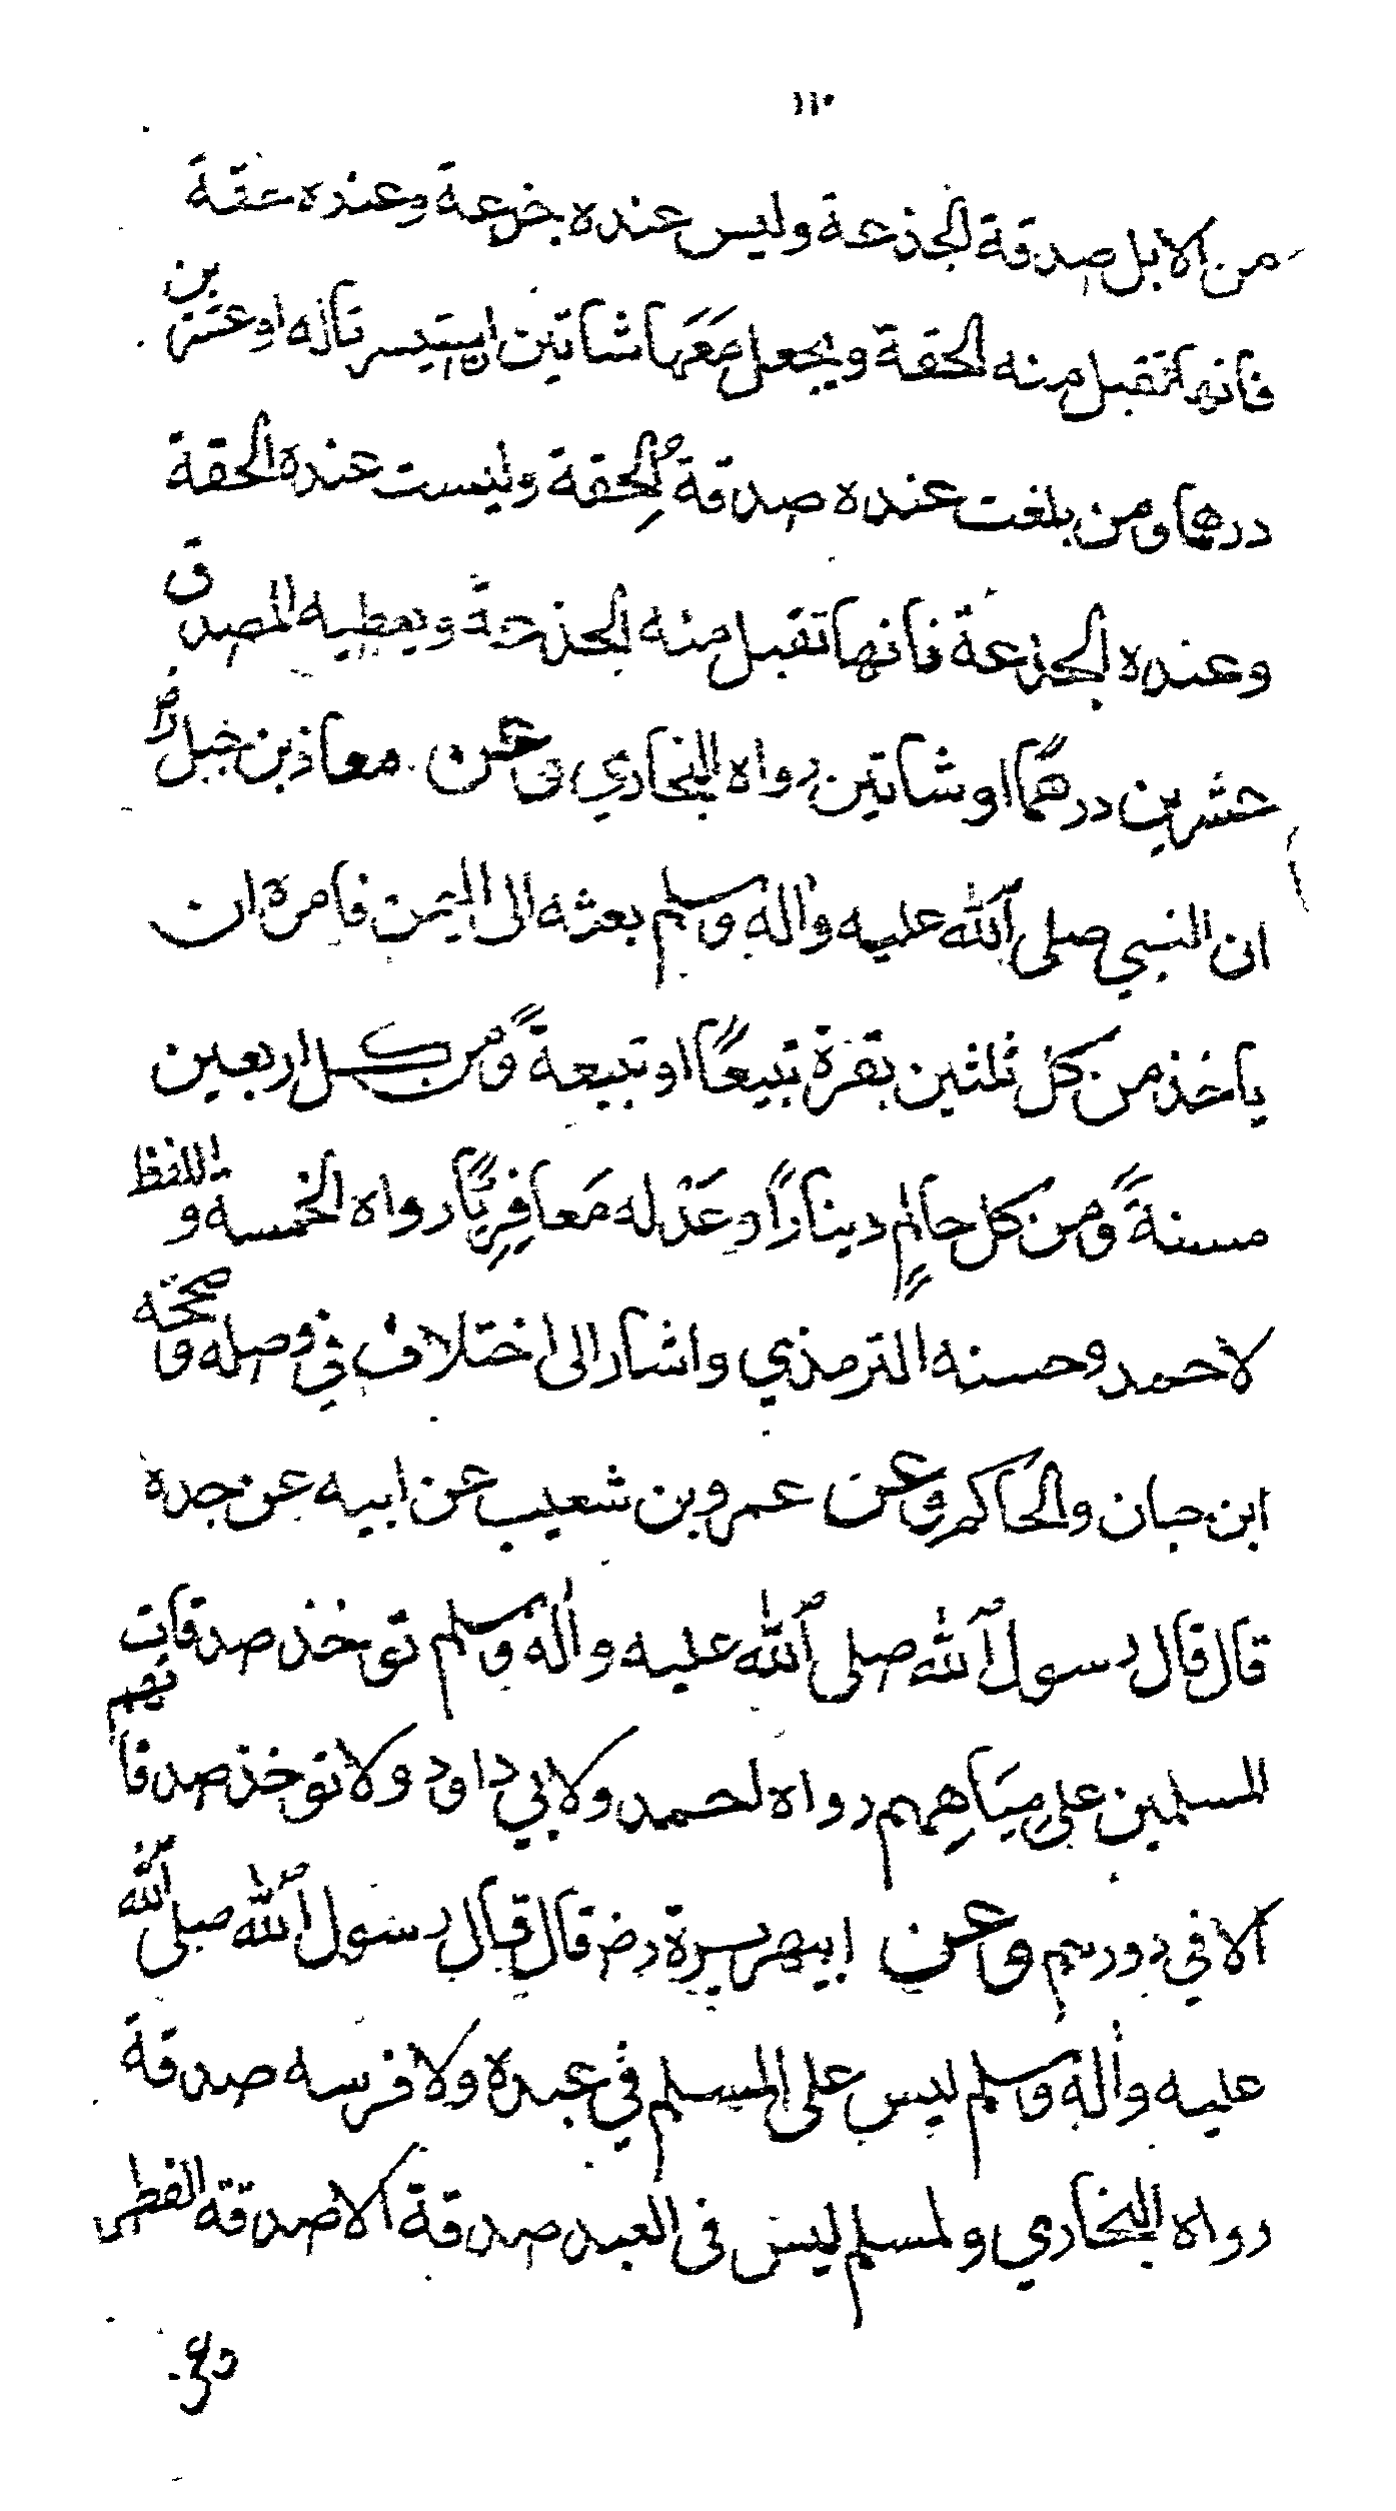 ١١٠
من الابل صدقة الجذعة وليس عنده جذعة وعنده حقة
فانها تقبل منه الحقة ويجعل مَعَهَا شاتين استيسرتا له او عشرين
درهما ومن بلغت عنده صدقة الحِقة وليست عنده الحقة
وعنده الجذعة فانها تقبل منه الجذعة ويعطيه المصدق
عشرين درهمًا او شاتين رواه البخاري وعن معاذ بن جبل رض
ان النبي صلى الله عليه واله وسلم بعثه الى اليمن فامره ان
ياخذ من كل ثلثين بقرة تبيعًا او تبيعةً ومن كل اربعين
مسنةً ومن كل حالمٍ دينارًا وعَدْله مَعافِرِيًّا رواه الخمسة واللفظ
لاحمد وحسنه الترمذي واشار الى اختلاف في وصله وصححه
ابن حبان والحاكم وعن عمرو بن شعيب عن ابيه عن جده
قال قال رسول الله صلى الله عليه واله وسلم توخذ صدقات
المسلمين على مِيَاهِهم رواه احمد ولابي داود ولا توخذ صدقاتهم
الا في دورهم وعن ابيهريرة رض قال قال رسول الله صلى الله
عليه واله وسلم ليس على المسلم في عبده ولا فرسه صدقة
رواه البخاري ولمسلم ليس في العبد صدقة الا صدقة الفطر